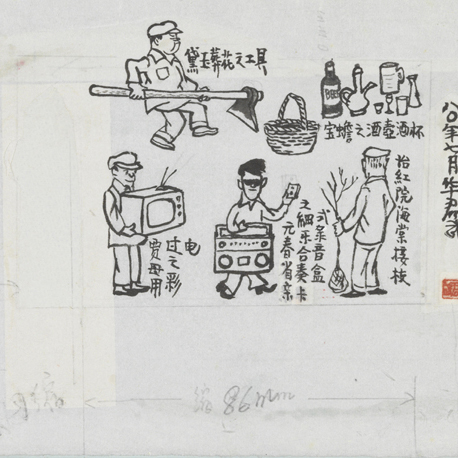 黛玉葬花之工具
宝蟾之酒壺酒杯
贾母用
过之彩
电
元春省亲
之細乐合奏卡
式录音盒
怡紅院海棠接枝
八〇年七月华君武
缩 86mm